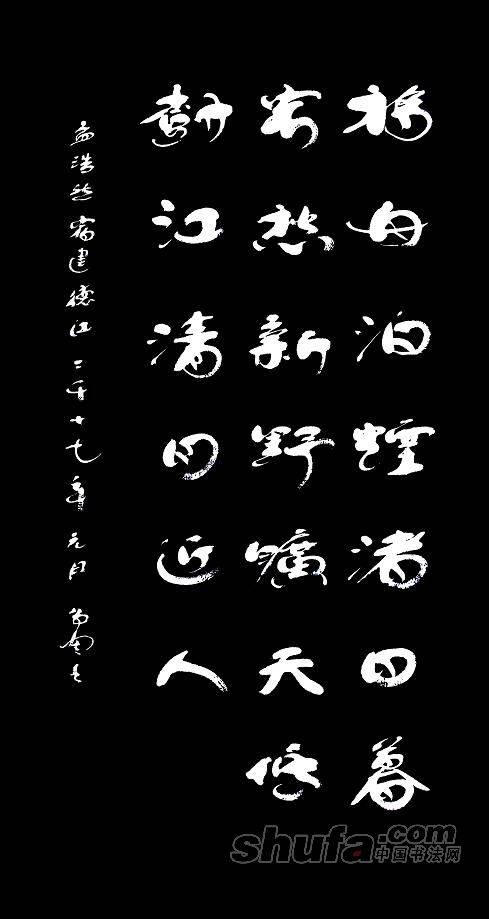 移舟泊煙渚日暮
客愁新野曠天低
樹江清月近人
孟浩然宿建德江二千十七年元月
shufa.com
中国书法网